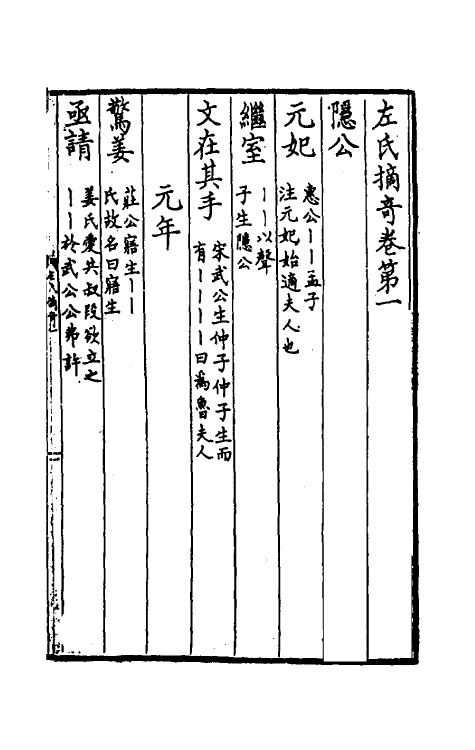 左氏摘奇卷第一
隱公
元妃 惠公丨丨孟子
注元妃始適夫人也
繼室 丨丨以聲
子生隱公
文在其手 宋武公生仲子仲子生而
有丨丨丨丨曰為魯夫人
元年
驚姜 莊公寤生丨丨
氏故名曰寤生
亟請 姜氏愛共叔段欲立之
丨丨於武公公弗許